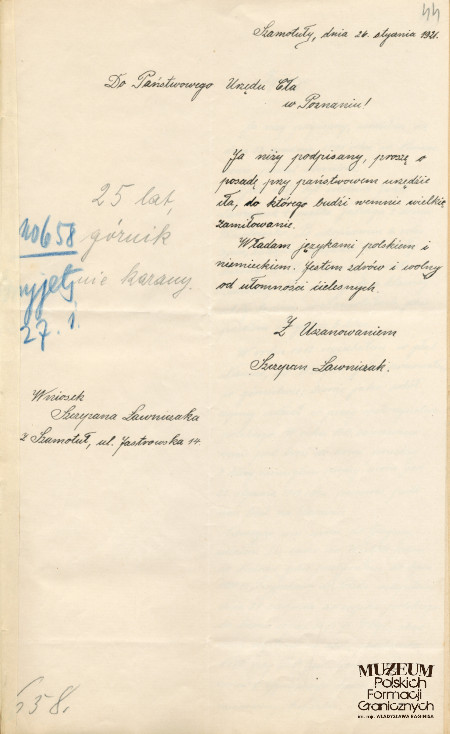 44
Szamotuły, dnia 24. stycznia 1921.
Do Państwowego Urzędu Cła
w Poznaniu!
Ja niży podpisany, proszę o
posadę przy państwowem urzędzie
cła, do którego budzi wemnie wielkie
zamiłowanie.
Władam językami polskiem i
niemieckiem. Jestem zdrów i wolny
od ułomności cielesnych.
Z Uszanowaniem
Szczepan Ławniczak.
25 lat,
górnik
nie karany.
10658
27. 1.
Wniosek
Szczepana Ławniczaka
z Szamotuł, ul. Jastrowska 14.
658.
MUZEUM
Polskich
Formacji
Granicznych
im. mjr. WŁADYSŁAWA RAGINISA